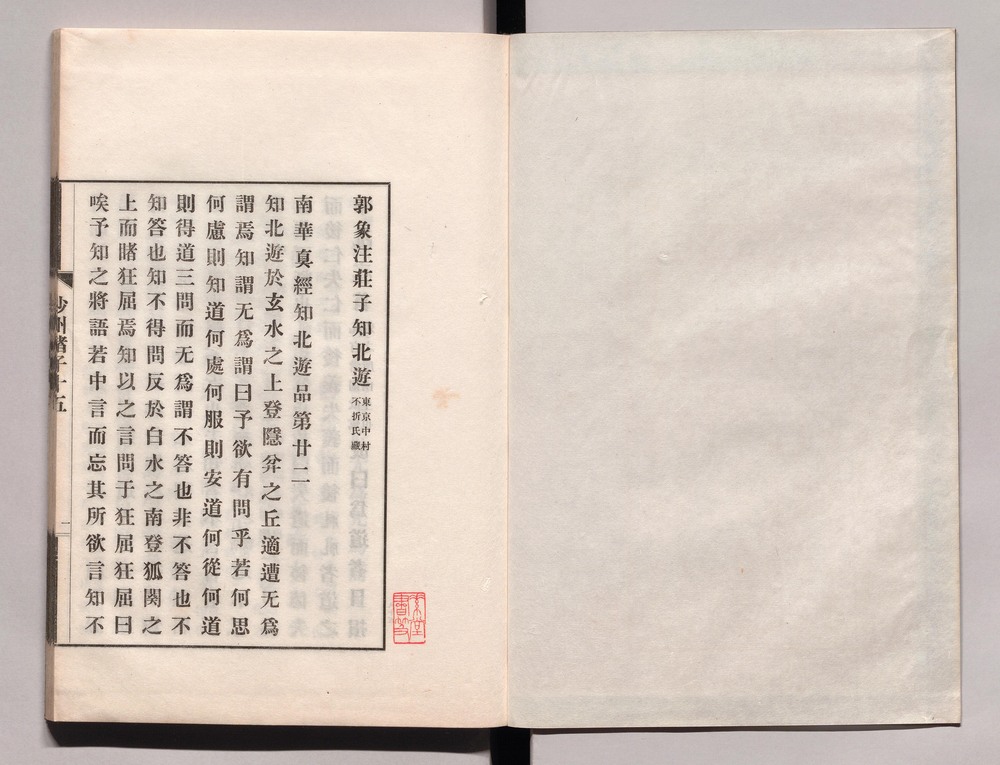 郭象注莊子知北遊 東京中村不折氏藏
南華真經知北遊品第廿二
知北遊於玄水之上登隱弅之丘適遭无爲
謂焉知謂无爲謂曰予欲有問乎若何思
何慮則知道何處何服則安道何從何道
則得道三問而无爲謂不答也非不答也不
知答也知不得問反於白水之南登狐闋之
上而賭狂屈焉知以之言問于狂屈狂屈曰
唉予知之將語若中言而忘其所欲言知不
沙州諸子十五
一